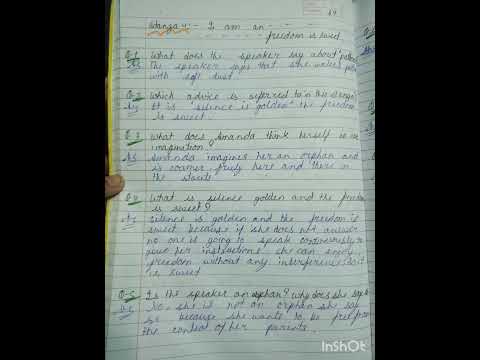 Stanza 4:- I am an - - - -
- - - - - freedom is sweet
Q-1 What does the speaker say about
Ans The speaker says that she makes
with soft dust.
Q-2 Which advice is referred to in the
Ans It is "silence is golden" the freedom
is sweet.
Q-3 What does Amanda think herself in
imagination
Ans Amanda imagines her an orphan and
is roamer freely here and there in
the
Q-4 What is silence golden and the freedom
is sweet?
Ans Silence is golden and the freedom is
sweet because if she does not answer
no one is going to speak continuously to
give her instructions. She can enjoy
freedom without any interference so it
is sweet
Q-5 Is the speaker an orphan? why does she say
No, she is not an orphan she say
so because she wants to be free from
the control of her parents.
InShOt